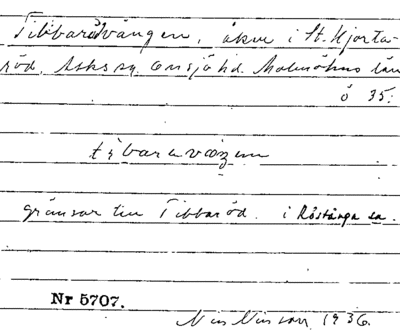 Tibbarödvängen, åker i St. Hjorta-
röd, Asks sn, Onsjö hd. Malmöhus län
ö 35.
gränsar till Tibbaröd. i Röstånga sn.
Nr 5707.
Nils Nilsson, 1936.